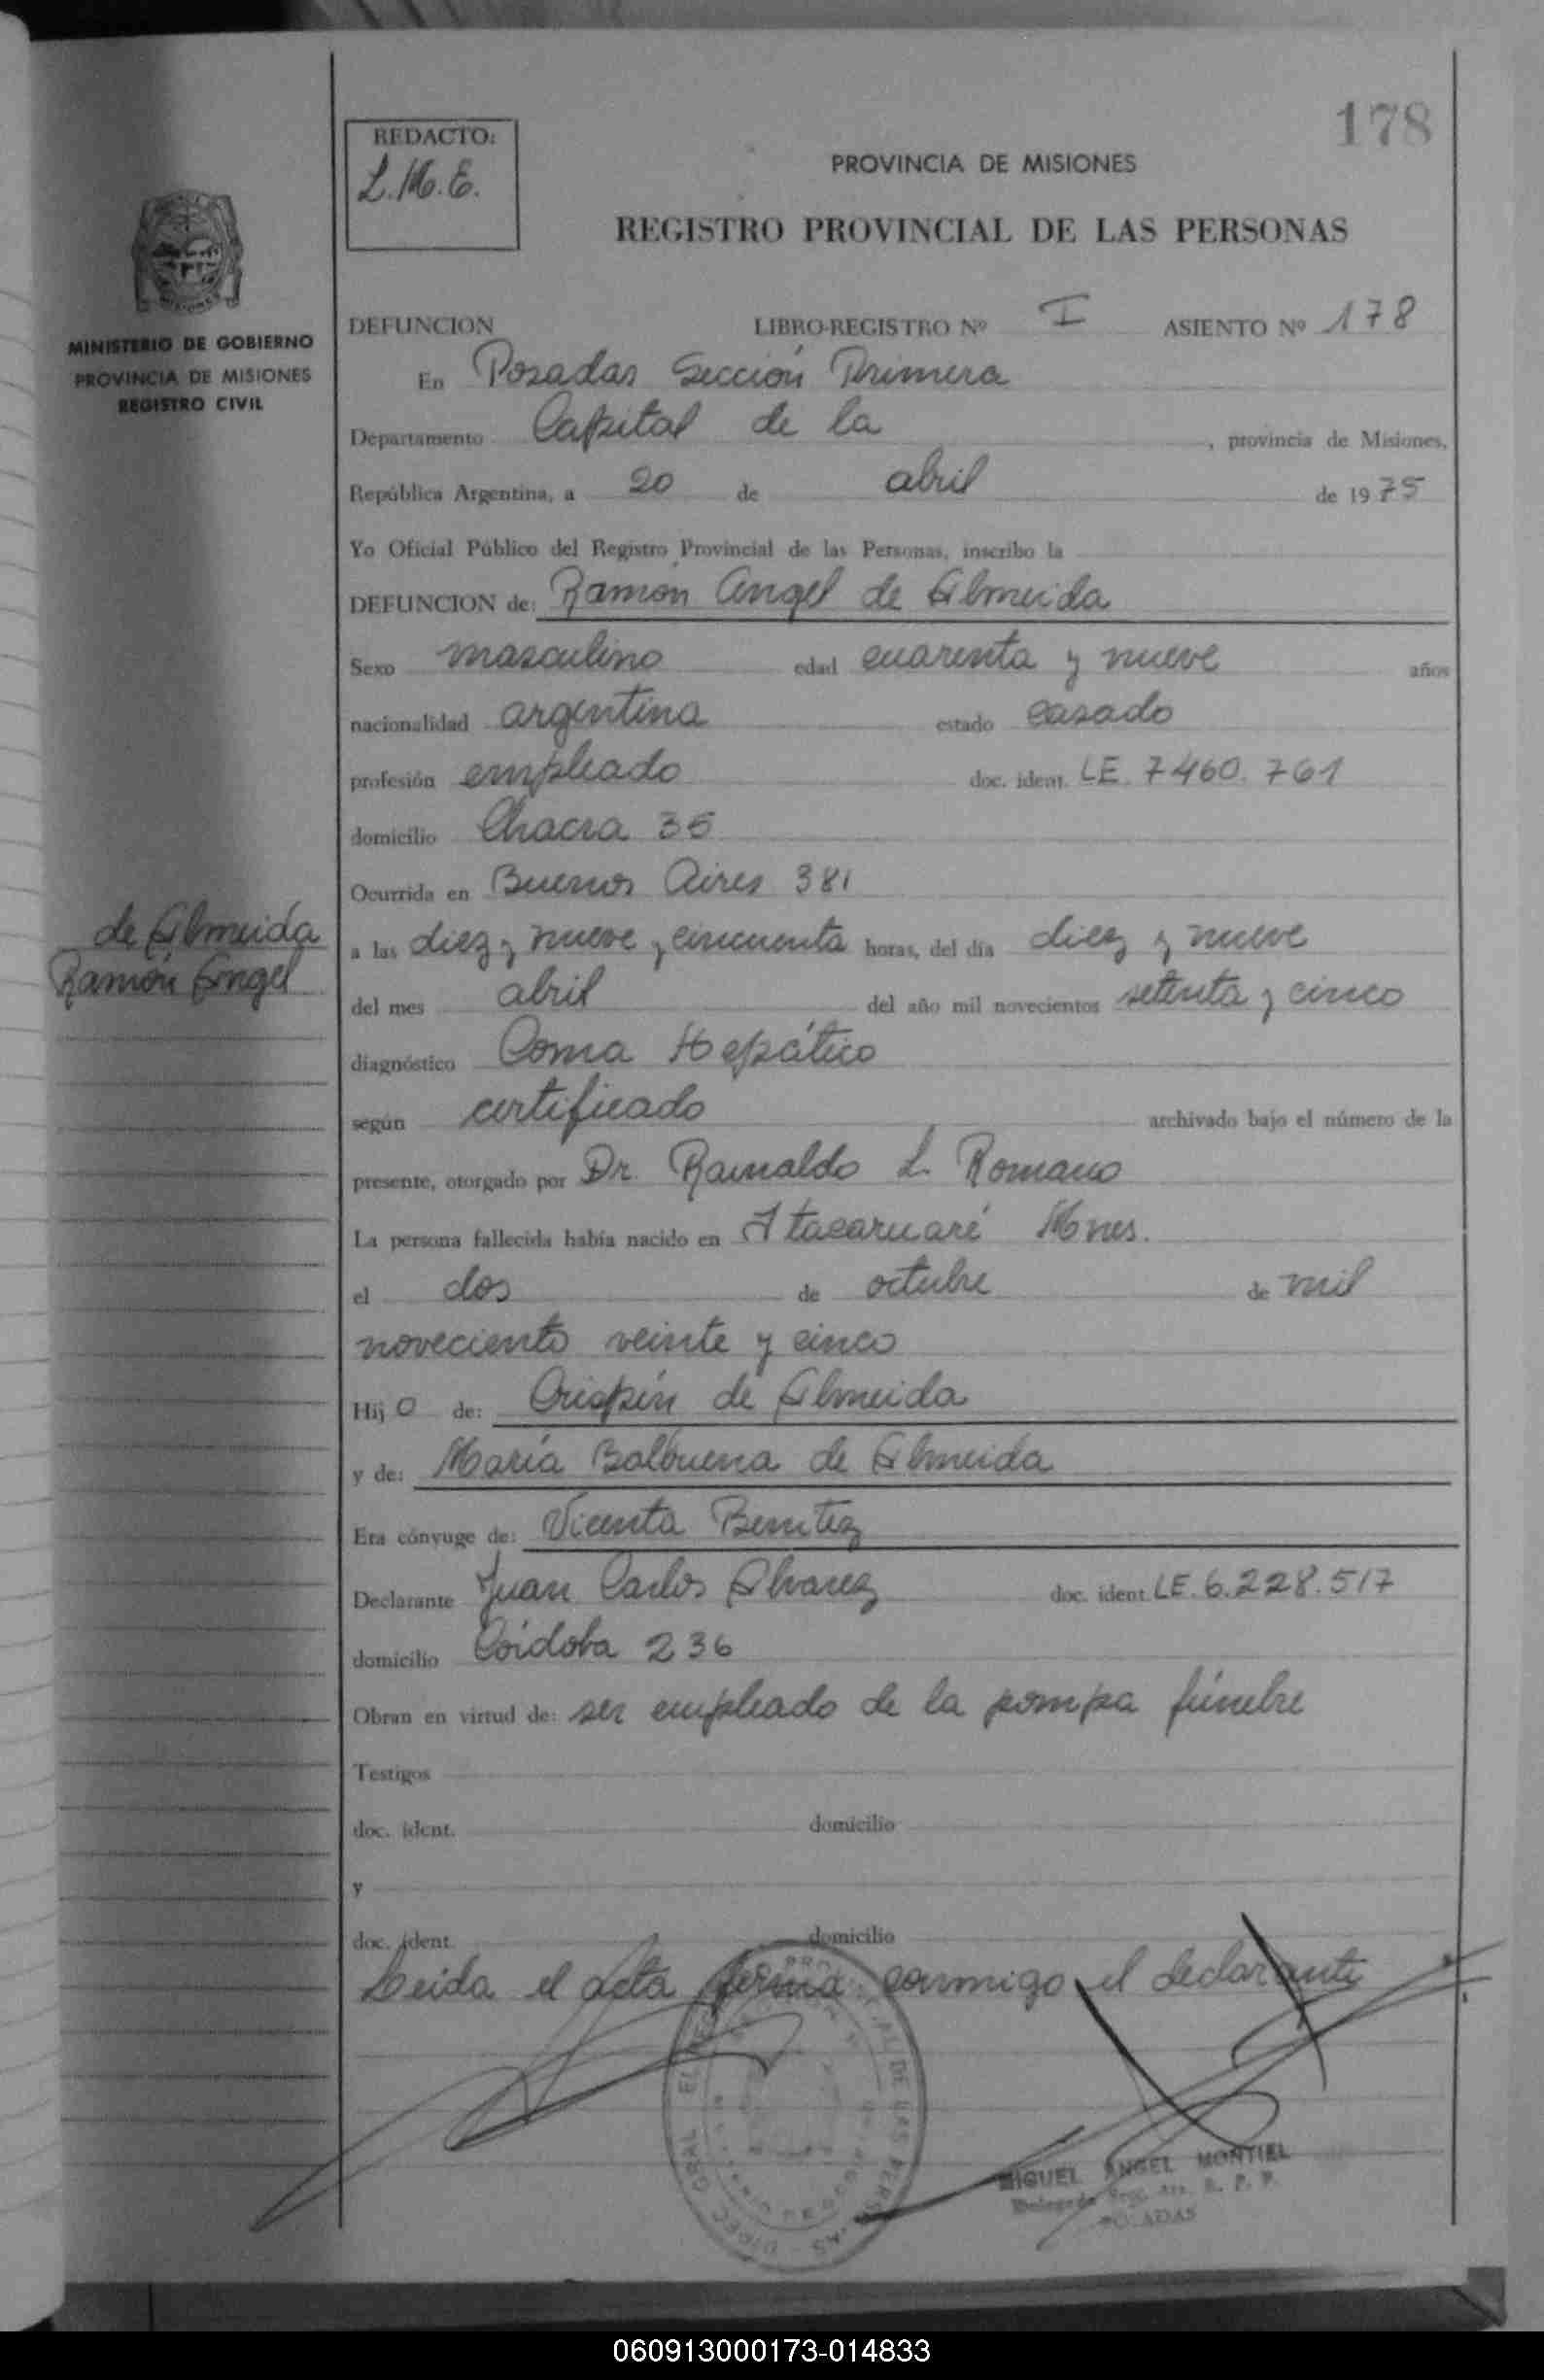 178
REDACTO:
L.M.E.
PROVINCIA DE MISIONES
REGISTRO PROVINCIAL DE LAS PERSONAS
MINISTERIO DE GOBIERNO
PROVINCIA DE MISIONES
REGISTRO CIVIL
DEFUNCION LIBRO-REGISTRO Nº I ASIENTO Nº 178
En Posadas Sección Primera
Departamento Capital de la , provincia de Misiones,
República Argentina, a 20 de abril de 1975
Yo Oficial Público del Registro Provincial de las Personas, inscribo la
DEFUNCION de: Ramón Angel de Almeida
Sexo masculino edad cuarenta y nueve años
nacionalidad argentina estado casado
profesión empleado doc. ident. LE. 7460.761
domicilio Chacra 35
Ocurrida en Buenos Aires 381
de Almeida
Ramón Angel
a las diez y nueve y cincuenta horas, del día diez y nueve
del mes abril del año mil novecientos setenta y cinco
diagnóstico Coma Hepático
según certificado archivado bajo el número de la
presente, otorgado por Dr. Rainaldo L. Romano
La persona fallecida había nacido en Itacaruaré Mnes.
el dos de octubre de mil
noveciento veinte y cinco
Hijo de: Crispín de Almeida
y de: María Balbuena de Almeida
Era cónyuge de: Vicenta Benitez
Declarante Juan Carlos Alvarez doc. ident. LE. 6.228.517
domicilio Córdoba 236
Obran en virtud de: ser empleado de la pompa fúnebre
Testigos
doc. ident. domicilio
y
doc. ident. domicilio
Leida el acta firma conmigo el declarante
MIGUEL ANGEL MONTIEL
POSADAS
060913000173-014833